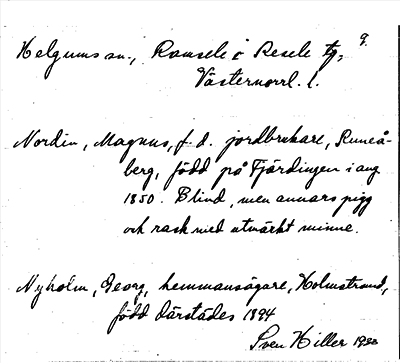 9.
Helgums sn., Ramsele o Resele tg,
Västernorrl. l.
Nordin, Magnus, f. d. jordbrukare, Runeå-
berg, född på Fjärdingen i aug
1850. Blind, men annars pigg
och rask med utmärkt minne.
Nyholm, Georg, hemmansägare, Holmstrand,
född därstädes 1894
Sven Hiller